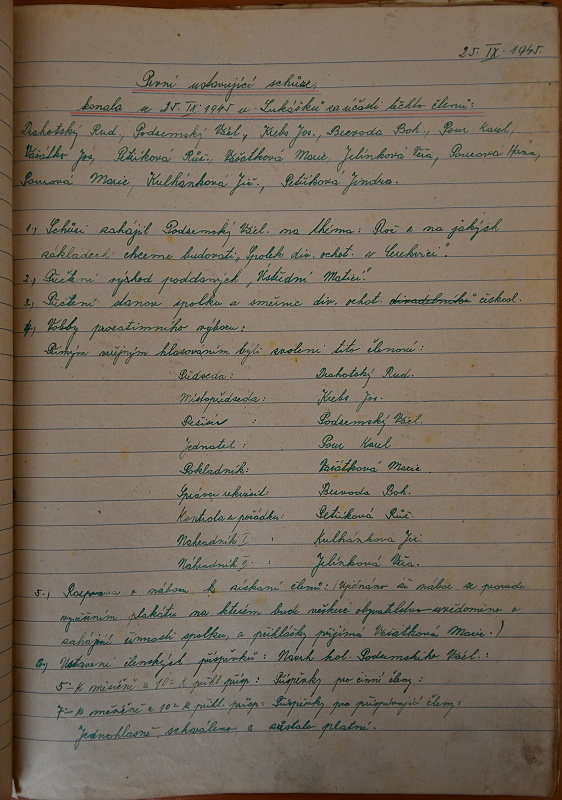 25. IX. 1945.
První ustavující schůze,
konala se 25. IX. 1945 u Lukášků za účasti těchto členů:
Drahotský Rud., Podzemský Václ., Krebs Jos., Bezvoda Boh., Pour Karel,
Vařátko Jos., Petříková Růž., Vařátková Marie, Jelínková Věra, Pourová Hana,
Pourová Marie, Kulhánková Jiř., Petříková Jindra.
1.) Schůzi zahájil Podzemský Václ. na théma: Proč a na jakých
základech chceme budovati „Spolek div. ochot. v Cerekvici".
2.) Přečtení výhod poddaných „Ústřední Maticí".
3.) Přečtení stanov spolku a směrnic div. ochot. divadelníků českosl.
4.) Volby prozatimního výboru:
Přímým veřejným hlasováním byli zvoleni tito členové:
Předseda: Drahotský Rud.
Místopředseda: Krebs Jos.
Režisér : Podzemský Václ.
Jednatel : Pour Karel
Pokladník: Vařátková Marie
Správce rekvisit: Bezvoda Boh.
Kontrola a pořádku: Petříková Růž.
Náhradník I. : Kulhánková Jiř.
Náhradník II. : Jelínková Věra.
5.) Rozprava o náboru k získání členů: (Ujednáno že nábor se provede
vyvěšením plakátu na kterém bude veškeré obyvatelstvo uvědoměno o
zahájení činnosti spolku, a přihlášky přijímá Vařátková Marie.)
6.) Ustavení členských příspěvků: Návrh kol. Podzemského Václ.:
5 K měsíčně a 10 K přihl. přísp.: Příspěvky pro činné členy:
7 K měsíčně a 10 K přihl. přísp.: Příspěvky pro přispívající členy:
Jednohlasně schváleno a zůstalo platné.